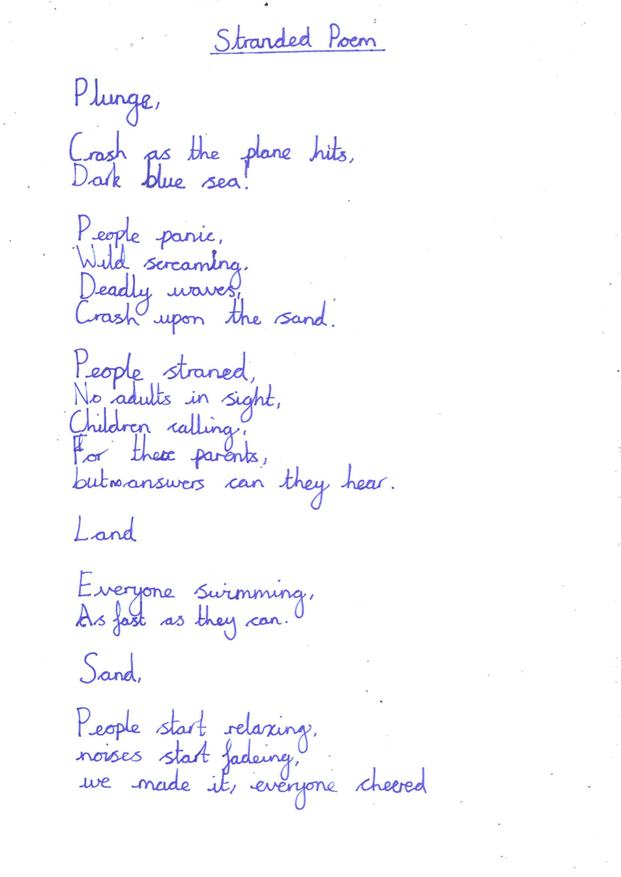 Stranded Poem
Plunge,
Crash as the plane hits,
Dark blue sea!
People panic,
Wild screaming.
Deadly waves,
Crash upon the sand.
People straned,
No adults in sight,
Children calling,
For there parents,
but no answers can they hear.
Land
Everyone swimming,
As fast as they can.
Sand,
People start relaxing,
noises start fadeing,
we made it, everyone cheered